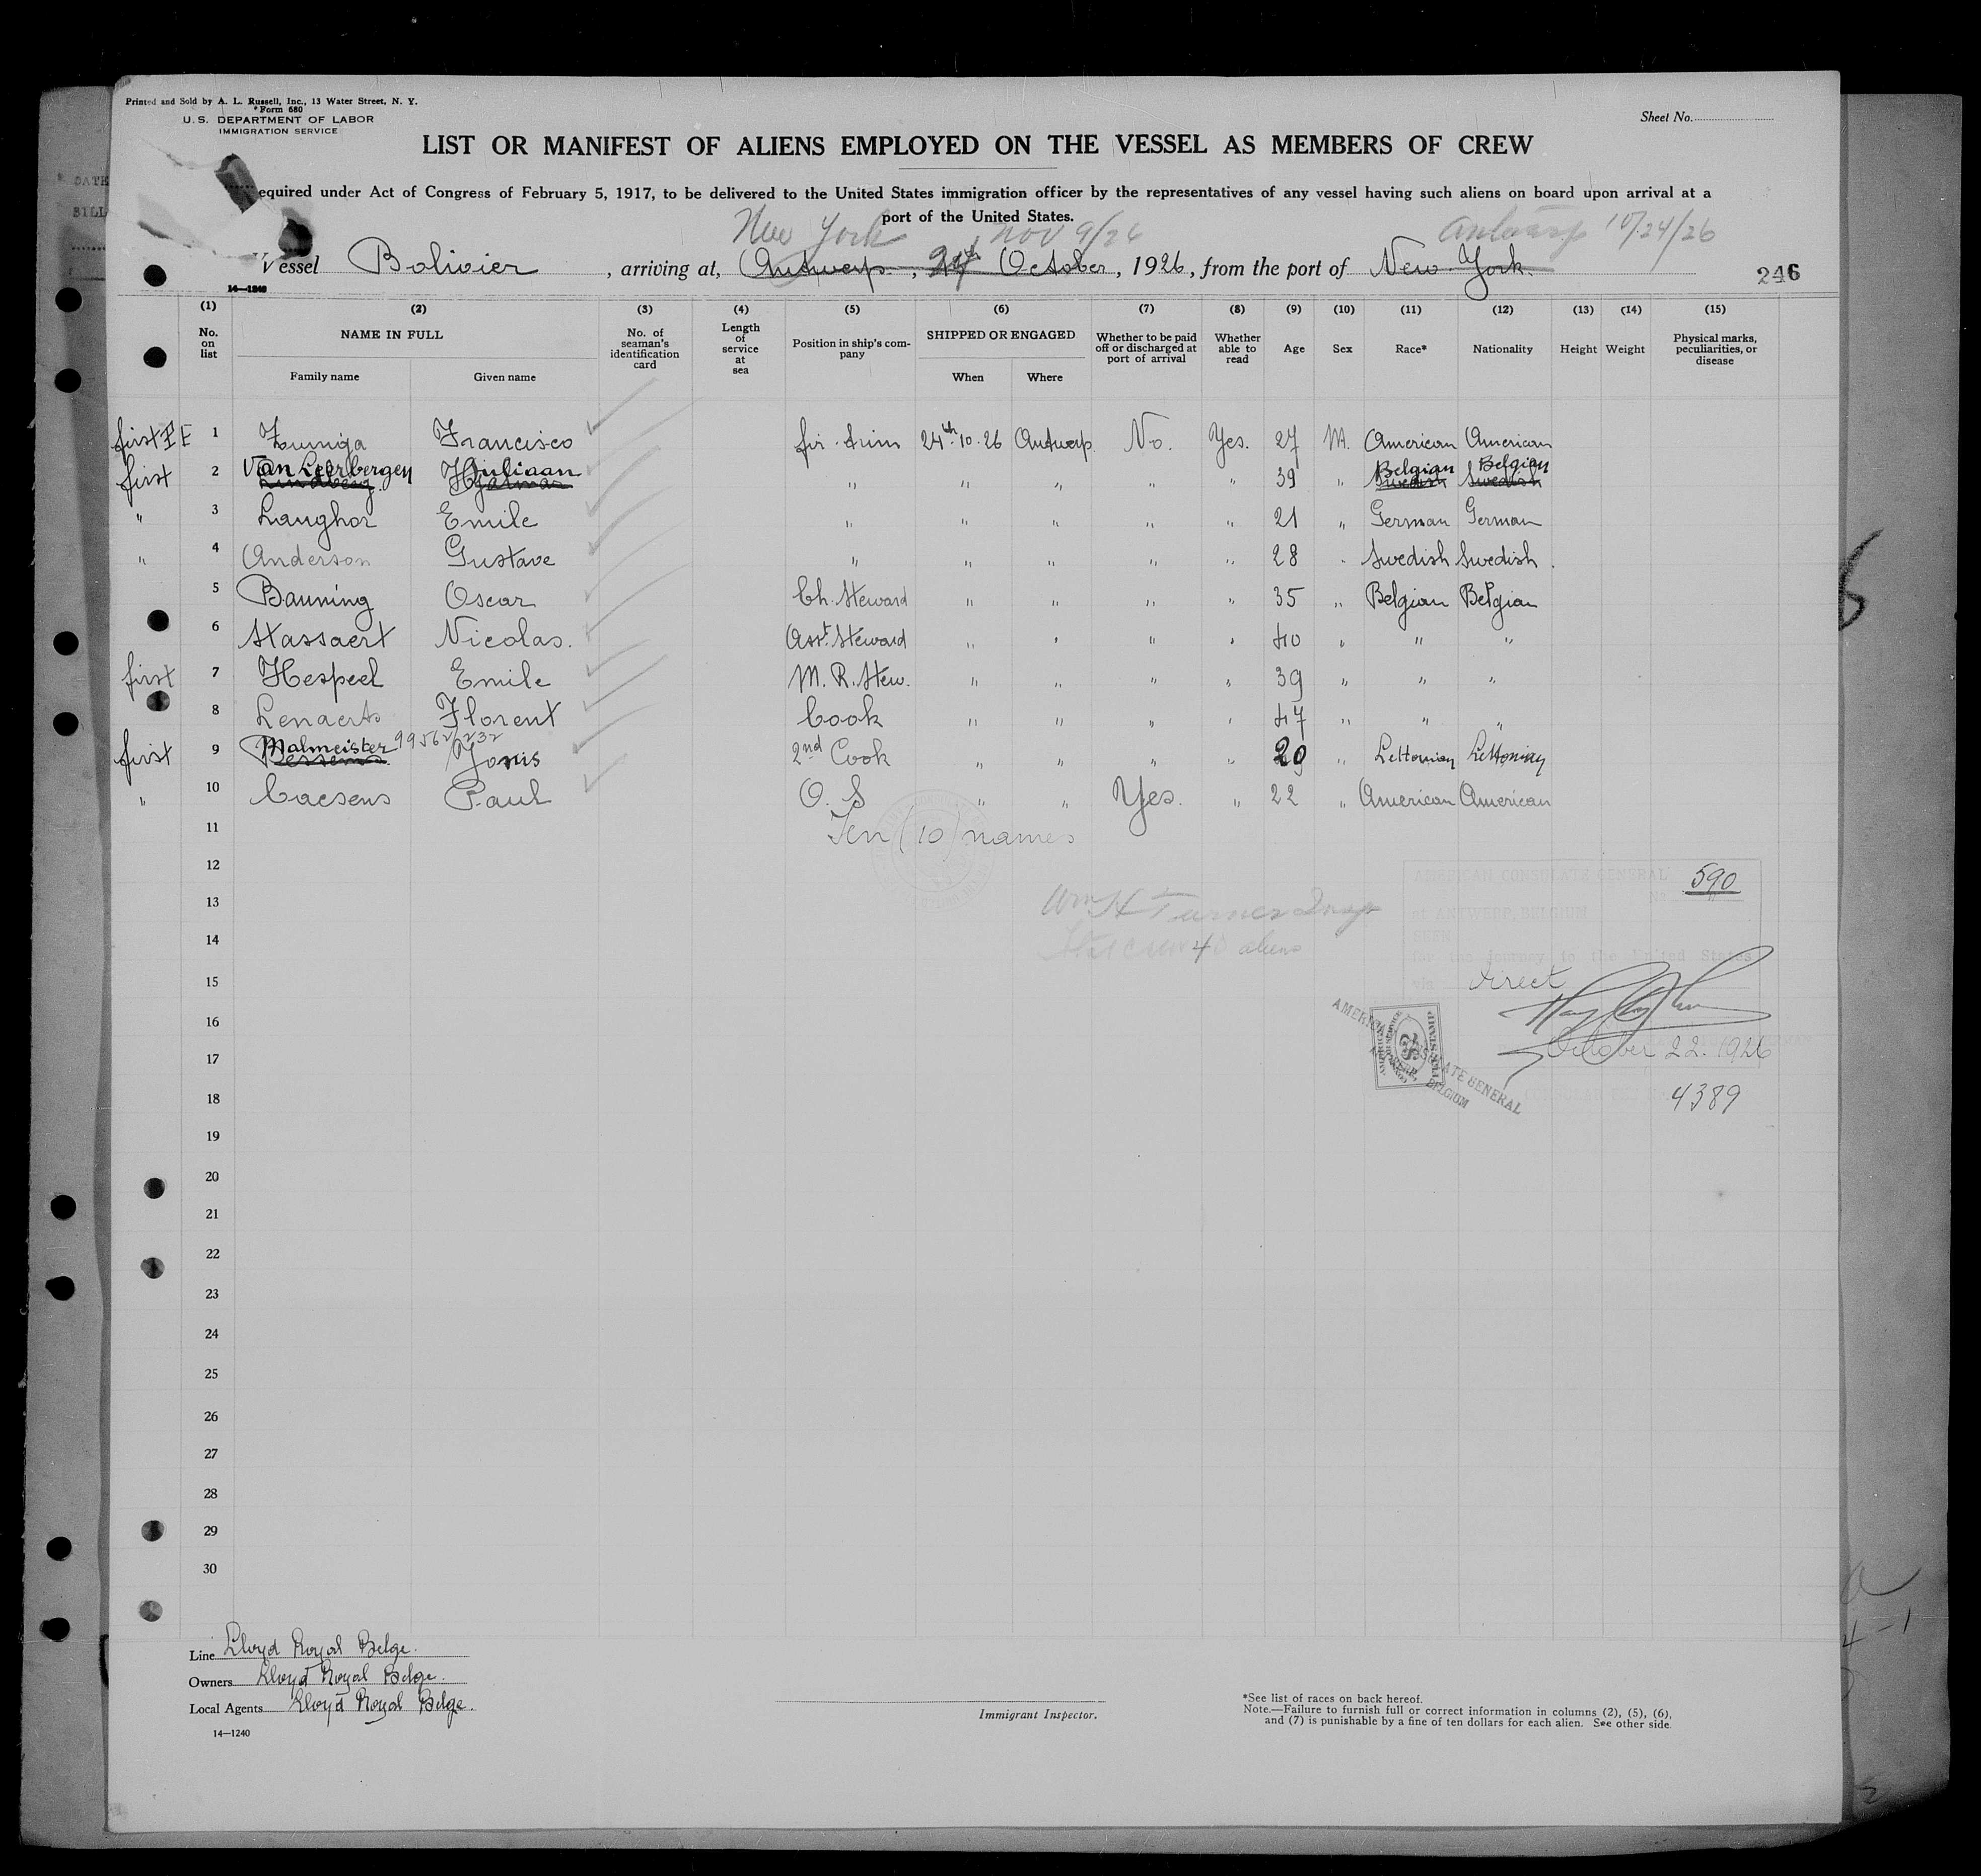 Printed and Sold by A. L. Russell, Inc., 13 Water Street, N. Y.
Form 680
U. S. DEPARTMENT OF LABOR
IMMIGRATION SERVICE
Sheet No.
LIST OR MANIFEST OF ALIENS EMPLOYED ON THE VESSEL AS MEMBERS OF CREW
equired under Act of Congress of February 5, 1917, to be delivered to the United States immigration officer by the representatives of any vessel having such aliens on board upon arrival at a
port of the United States.
New York Nov 9/26 Antwerp 10/24/26
Vessel Bolivier, arriving at, Antwerp, 24th October, 1926, from the port of New York.
246
14—1240
(1) (2) (3) (4) (5) (6) (7) (8) (9) (10) (11) (12) (13) (14) (15)
No. on list NAME IN FULL No. of seaman's identification card Length of service at sea Position in ship's company SHIPPED OR ENGAGED Whether to be paid off or discharged at port of arrival Whether able to read Age Sex Race* Nationality Height Weight Physical marks, peculiarities, or disease
Family name Given name When Where
first P E 1 Zuniga Francisco fir. trim 24th 10-26 Antwerp. No. Yes. 27 M. American American
first 2 Van Leerbergen Juliaan " " " " " 39 " Belgian Belgian
Lindberg Hjalmar Swedish Swedish
" 3 Langhor Emile " " " " " 21 " German German
" 4 Anderson Gustave " " " " " 28 " Swedish Swedish.
5 Bauning Oscar Ch. Steward " " " " 35 " Belgian Belgian
6 Stassaert Nicolas. Asst. Steward " " " " 40 " " "
first 7 Hespeel Emile M. R. Stew. " " " " 39 " " "
8 Lenaerts Florent Cook " " " " 47 " " "
first 9 Malmeister 99562/232 Yonis 2nd Cook " " " " 20 " Lettonian Lettonian
" 10 Caesens Paul O. S " " Yes. " 22 " American American
11 Ten (10) names
12
13 Wm H Turner Insp
14 aliens
15
16
17
18
19
20
21
22
23
24
25
26
27
28
29
30
AMERICAN CONSULATE GENERAL
No. 590
at ANTWERP, BELGIUM
SEEN
for the journey to the United States
via direct
October 22. 1926
AMERICAN CONSULATE GENERAL
BELGIUM
FEE STAMP
4389
Line Lloyd Royal Belge.
Owners Lloyd Royal Belge.
Local Agents Lloyd Royal Belge.
14—1240
Immigrant Inspector.
*See list of races on back hereof.
Note.—Failure to furnish full or correct information in columns (2), (5), (6),
and (7) is punishable by a fine of ten dollars for each alien. See other side.